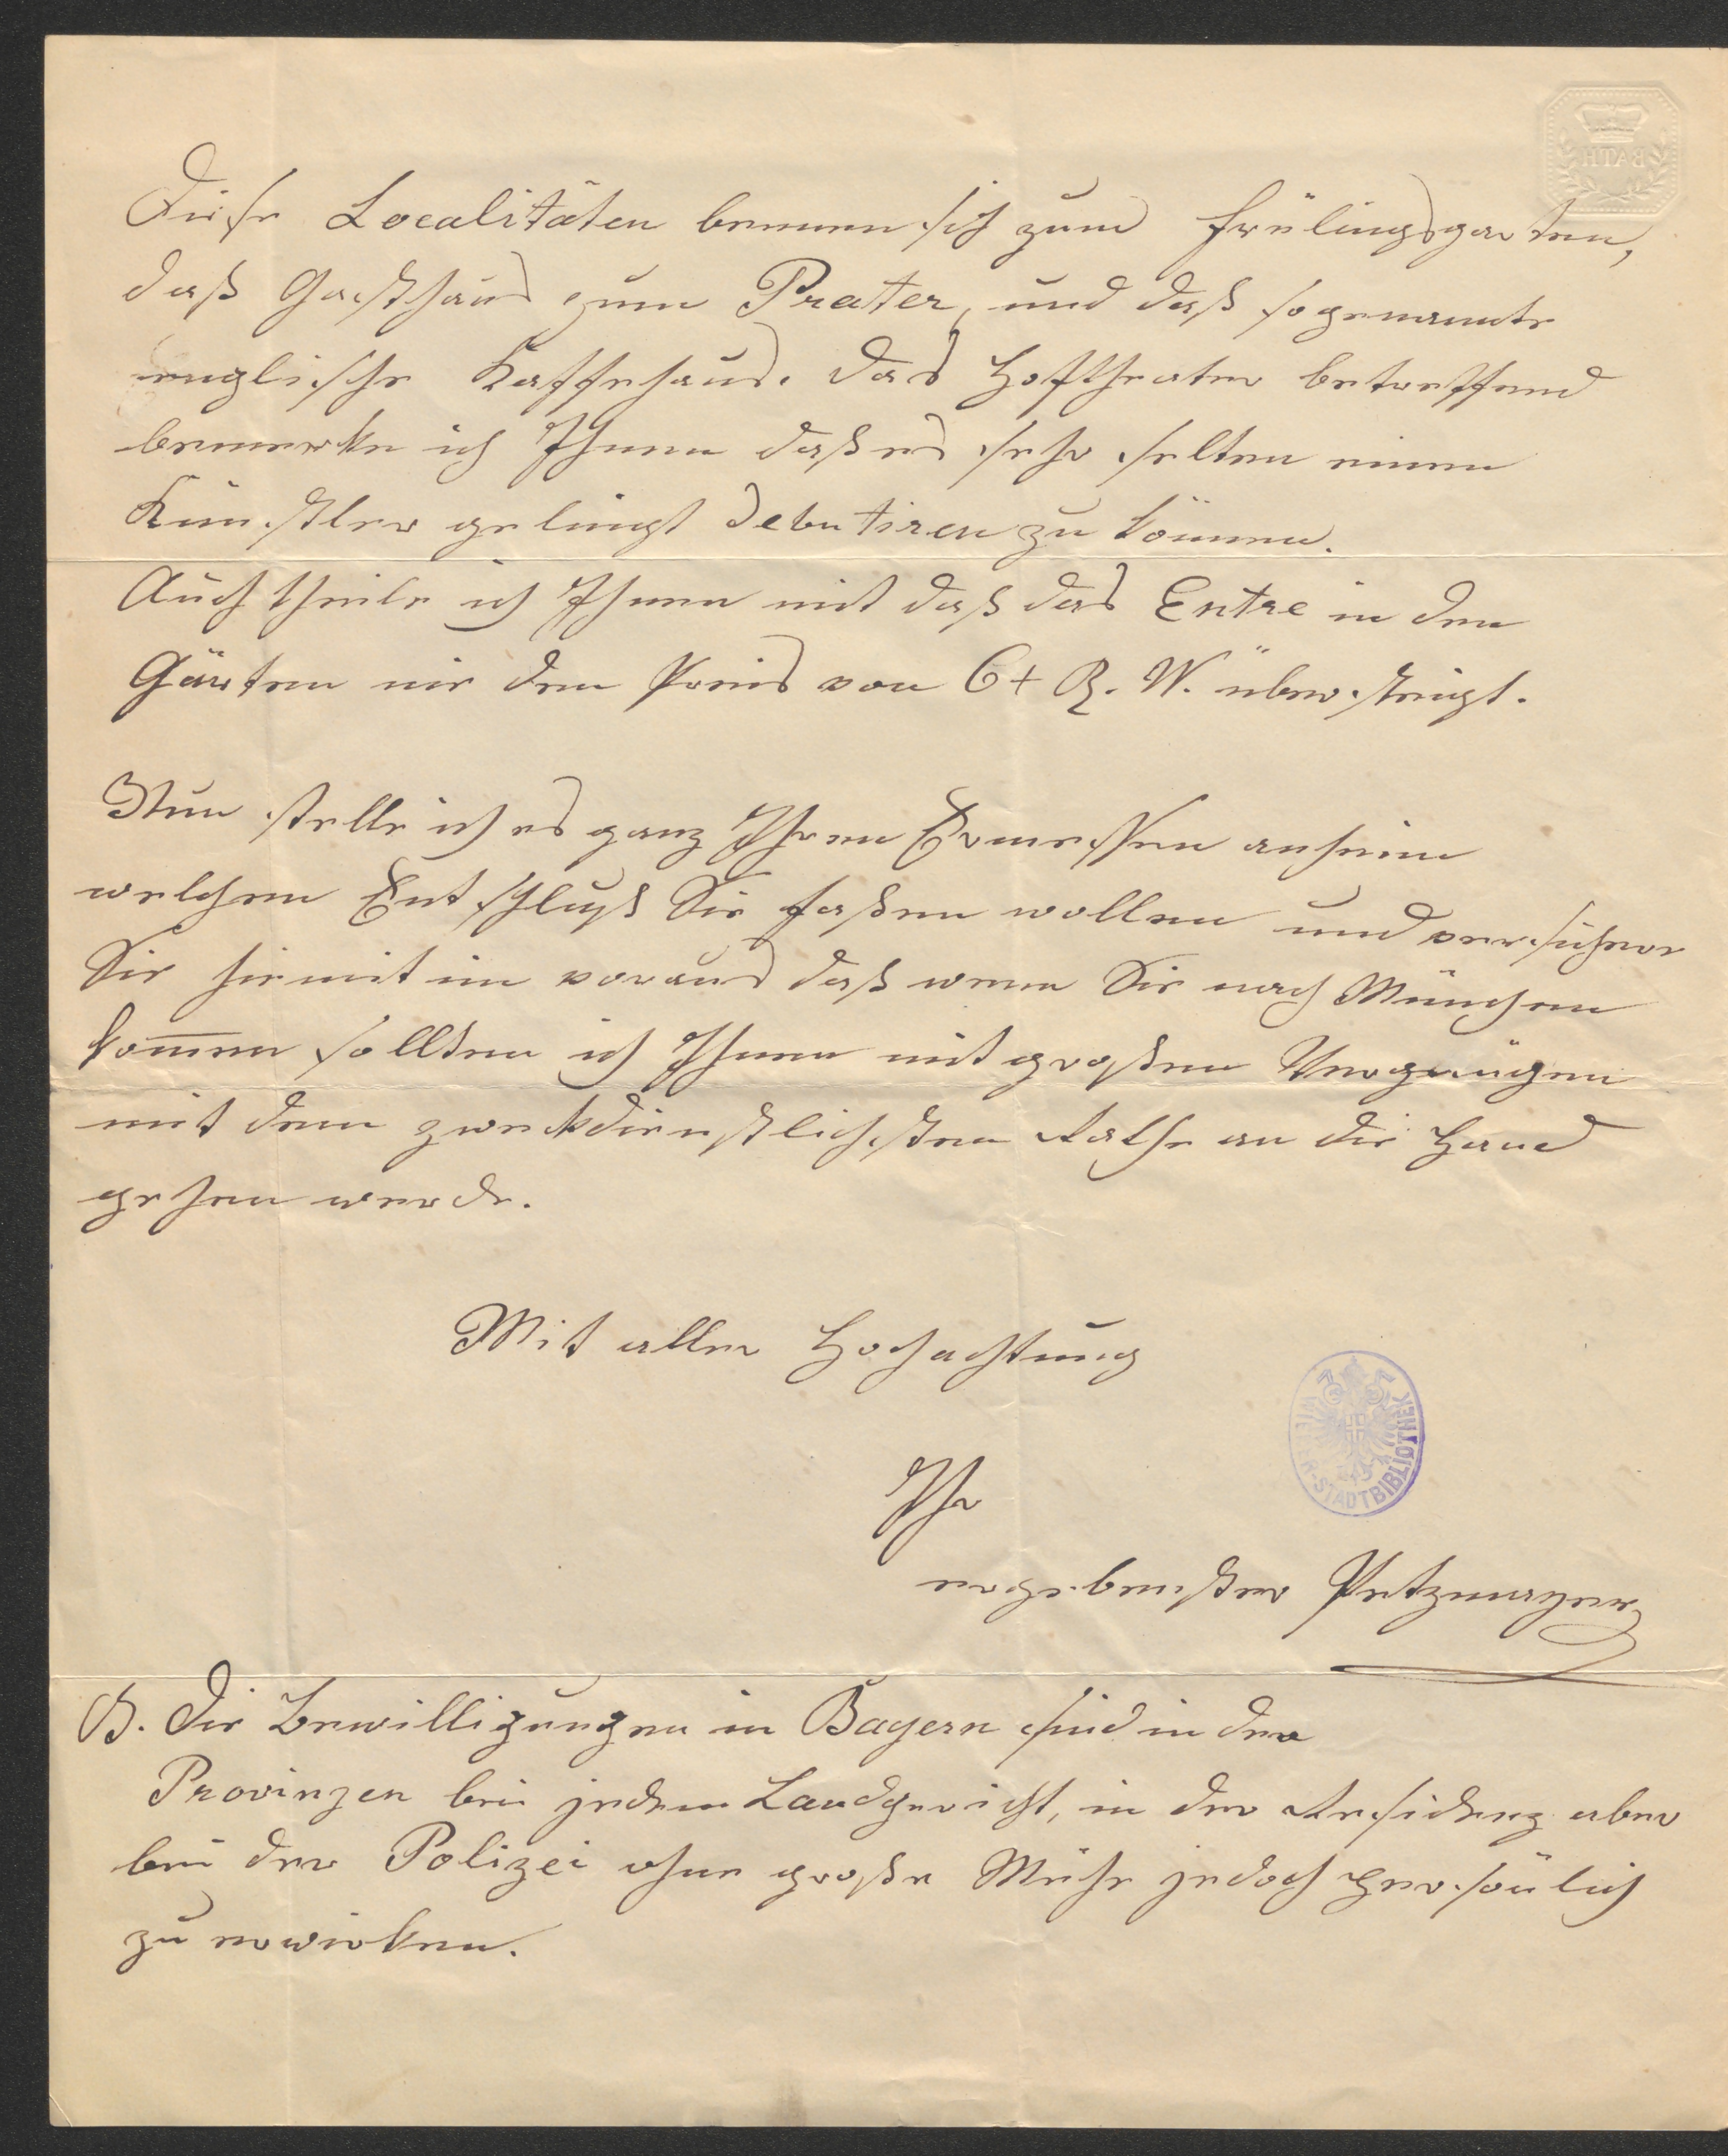 BATH
Diese Localitäten benennen sich zum Frülingsgarten,
daß Gasthaus zum Prater, und daß sogenannte
englische Kaffehaus. Das Hoftheater betreffend
bemerke ich Ihnen daß es sehr selten einem
Künstler gelingt debutiren zu können.
Auch theile ich Ihnen mit daß das Entre in den
Gärten nie den Preis von 6+ R. W. übersteigt.
Nun stelle ich es ganz Ihrem Ermessen anheim
welchen Entschluß Sie faßen wollen und versichere
Sie hiemit im voraus daß wenn Sie nach München
kom̅en sollten ich Ihnen mit großem Vergnügen
mit dem zweckdienstlichsten Rathe an die Hand
gehen werde.
Mit aller Hochachtung
Ihr
ergebenster Petzmayer
WIENER-STADTBIBLIOTHEK
Die Bewilligungen in Bayern sind in den
Provinzen bei jedem Landgericht, in der Residenz aber
bei der Polizei ohne große Mühe jedoch persönlich
zu erwirken.